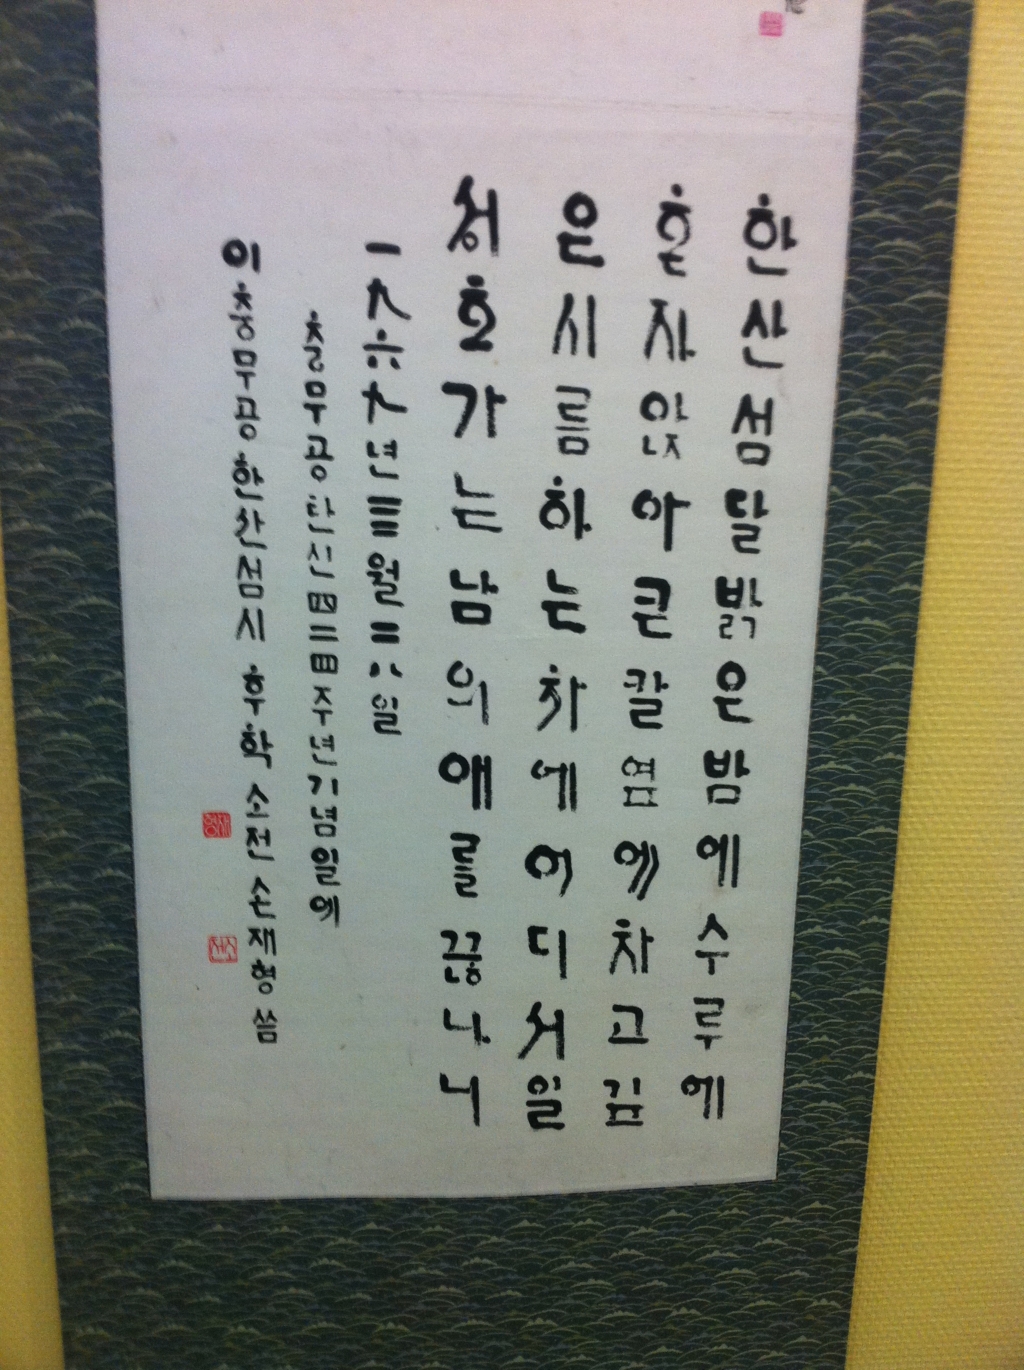 한산섬달밝은밤에수루에
혼자앉아큰칼옆에차고깊
은시름하는차에어디서일
성호가는남의애를끊나니
一九六九년亖월二八일
충무공탄신四二四주년기념일에
이충무공한산섬시 후학소전손재형씀